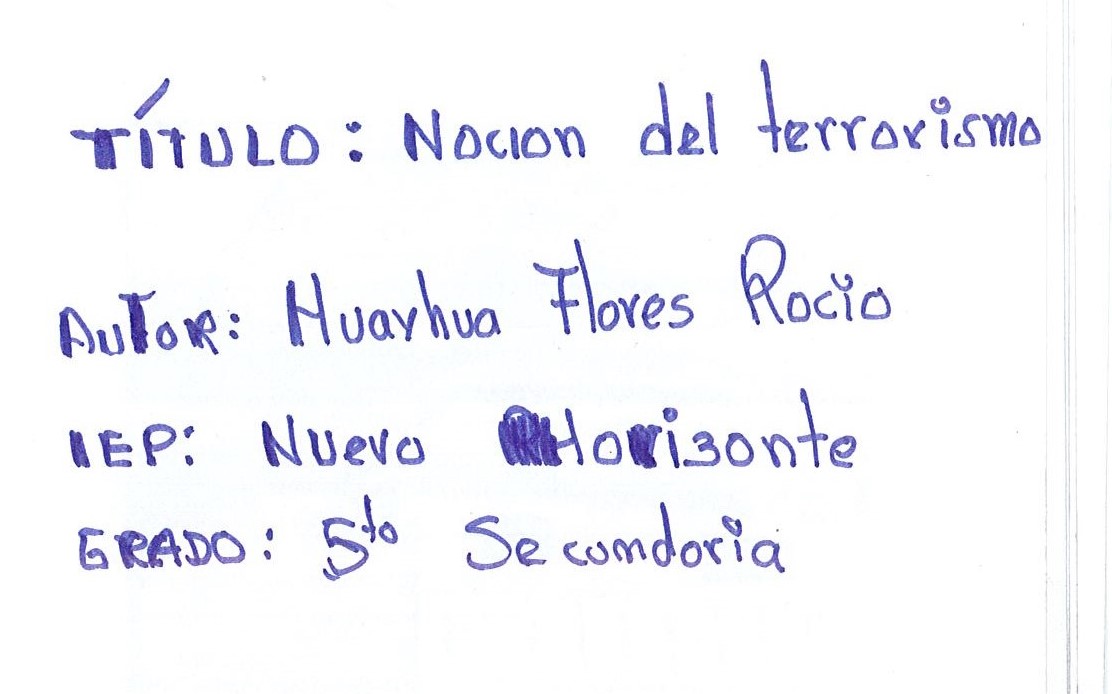 TÍTULO: Nocion del terrorismo
AUTOR: Huayhua Flores Rocio
IEP: Nuevo Horizonte
GRADO: 5to Secundaria